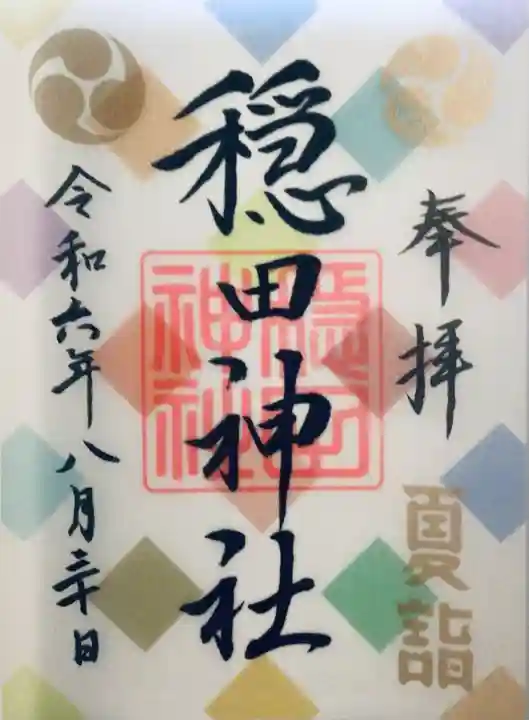 奉拝
夏詣
穏田神社
穏田神社
令和六年八月三十日